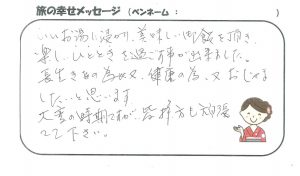 旅の幸せメッセージ（ペンネーム：　　　　）
いいお湯に浸かり、美味しい御飯を頂き、
楽しいひとときを過ごす事が出来ました。
長生きの為、健康の為、又おじゃま
したいと思います
大変の時期ですが、皆様方も頑張
って下さい。